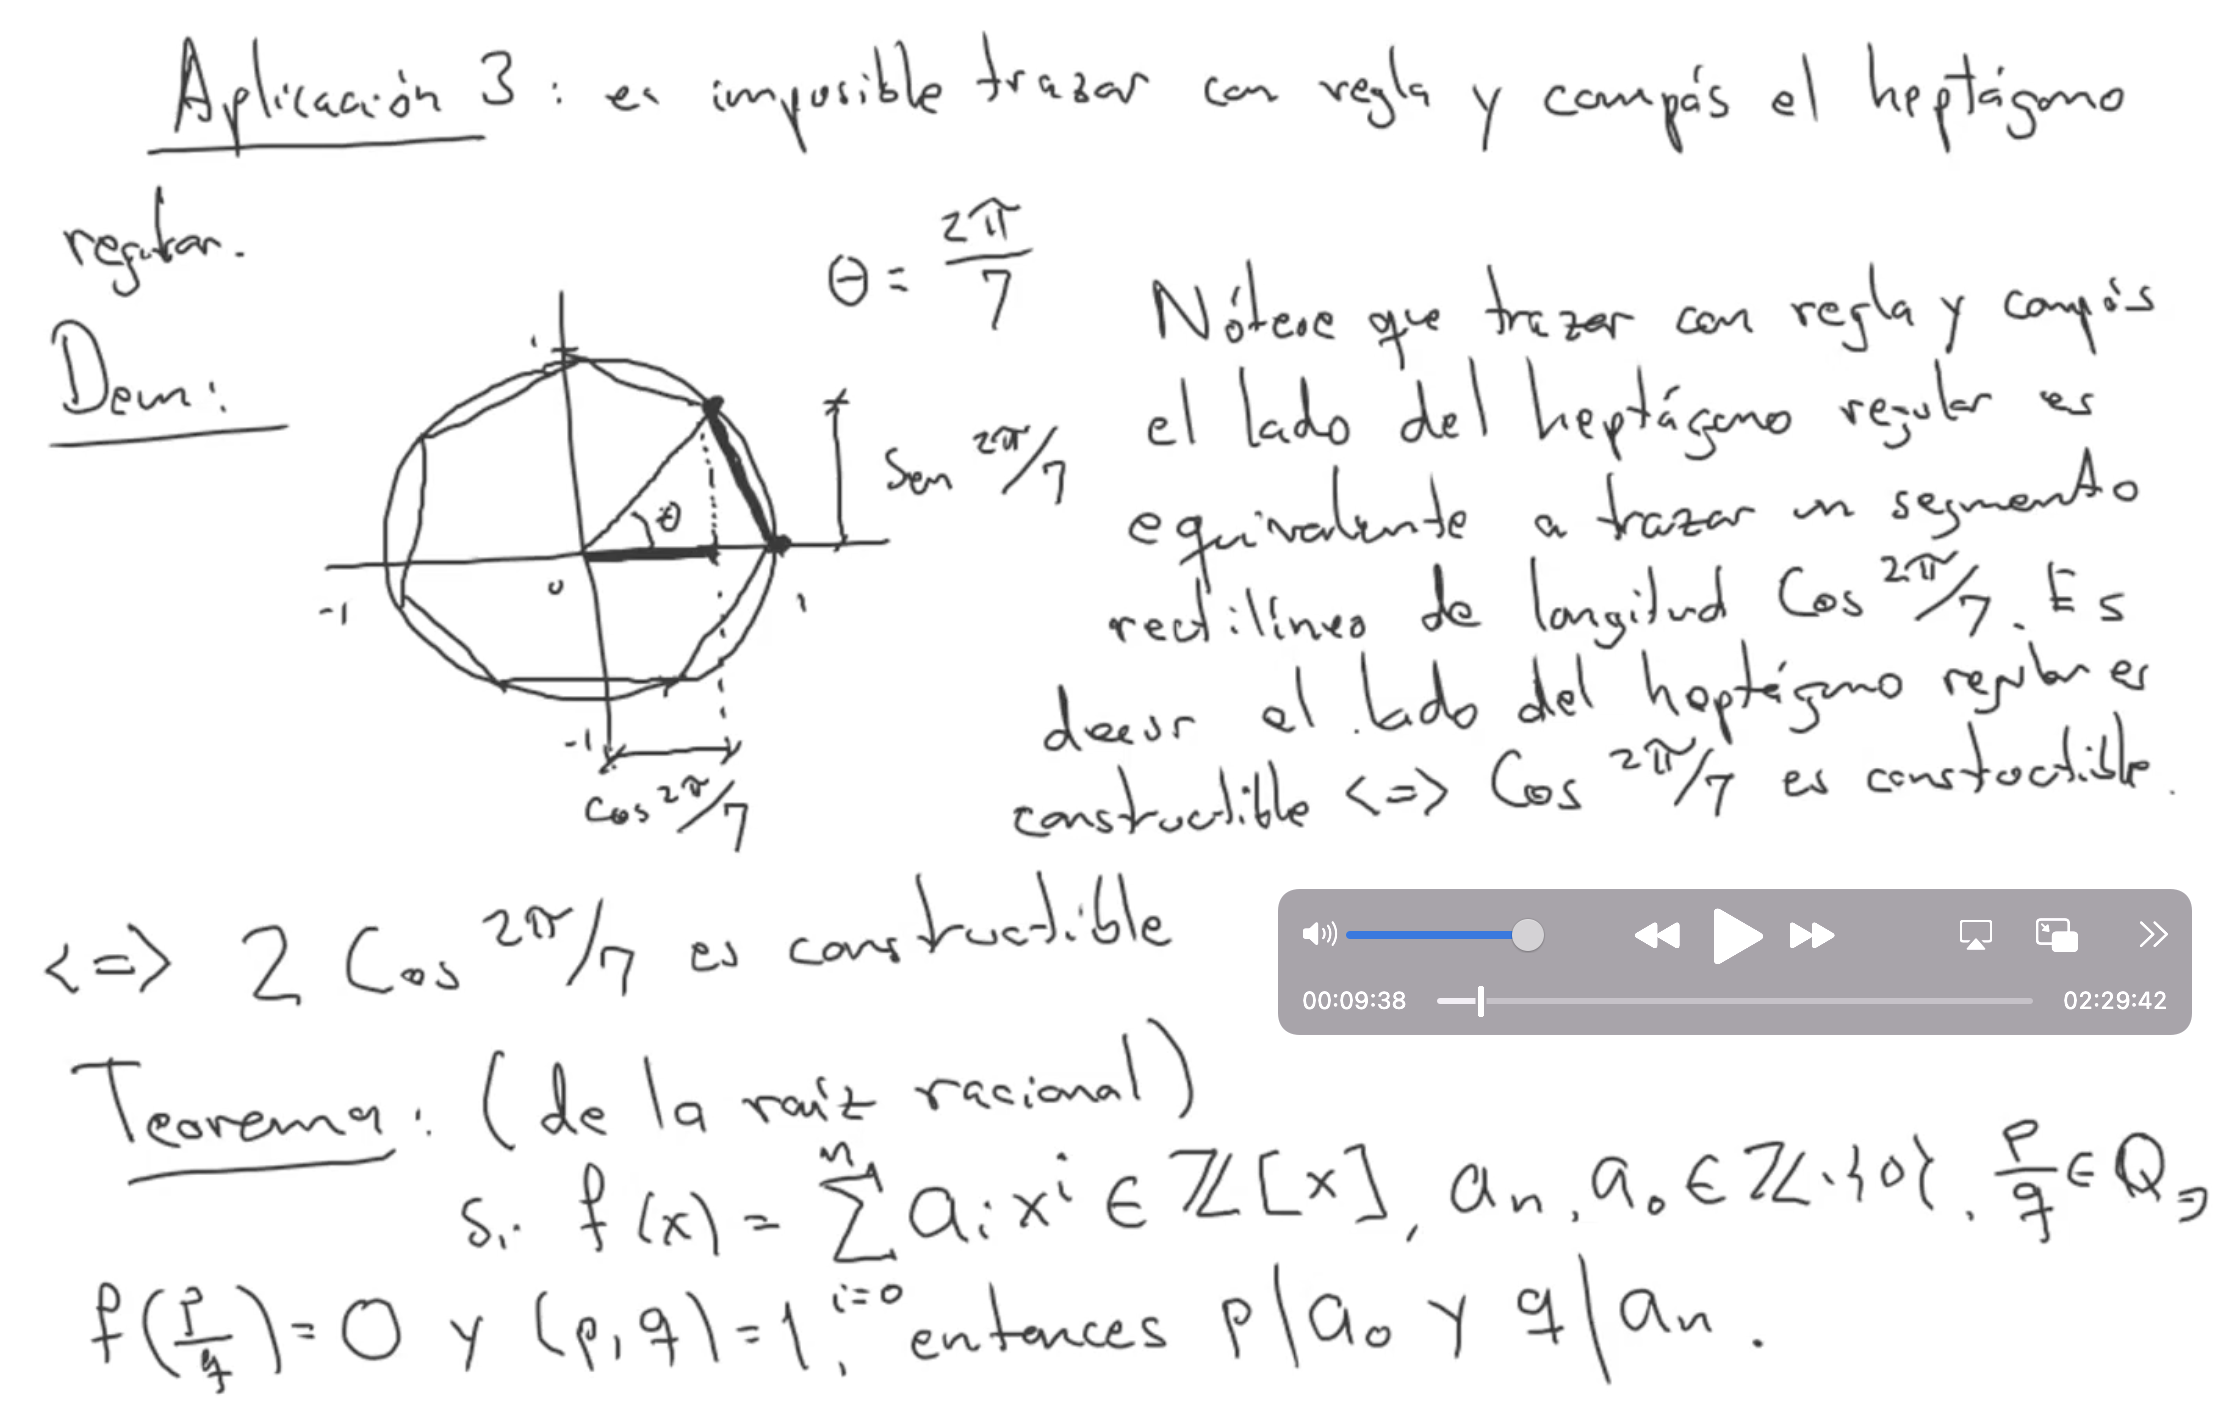 Aplicación 3: es imposible trazar con regla y compás el heptágono
regular.
θ = 2π/7
Dem:
i
Sen 2π/7
θ
0
-1
1
-1
Cos 2π/7
Nótese que trazar con regla y compás
el lado del heptágono regular es
equivalente a trazar un segmento
rectilíneo de longitud Cos 2π/7. Es
decir el lado del heptágono regular es
constructible <=> Cos 2π/7 es constructible.
<=> 2 Cos 2π/7 es constructible
00:09:38
02:29:42
Teorema: (de la raíz racional)
si f(x) = ∑_{i=0}^{n} aᵢxⁱ ∈ ℤ[x], aₙ, a₀ ∈ ℤ\{0}, p/q ∈ Q ∋
f(p/q) = 0 y (p,q) = 1, entonces p|a₀ y q|aₙ.